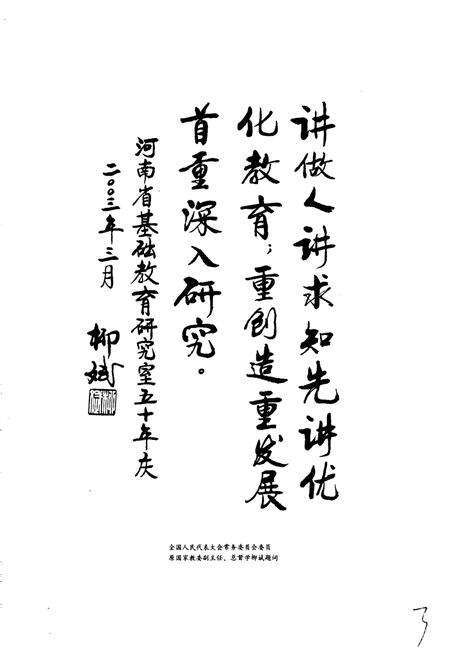 讲做人讲求知先讲优
化教育；重创造重发展
首重深入研究。
河南省基础教育研究室五十年庆
二〇〇三年三月
柳斌
全国人民代表大会常务委员会委员
原国家教委副主任、总督学柳斌题词